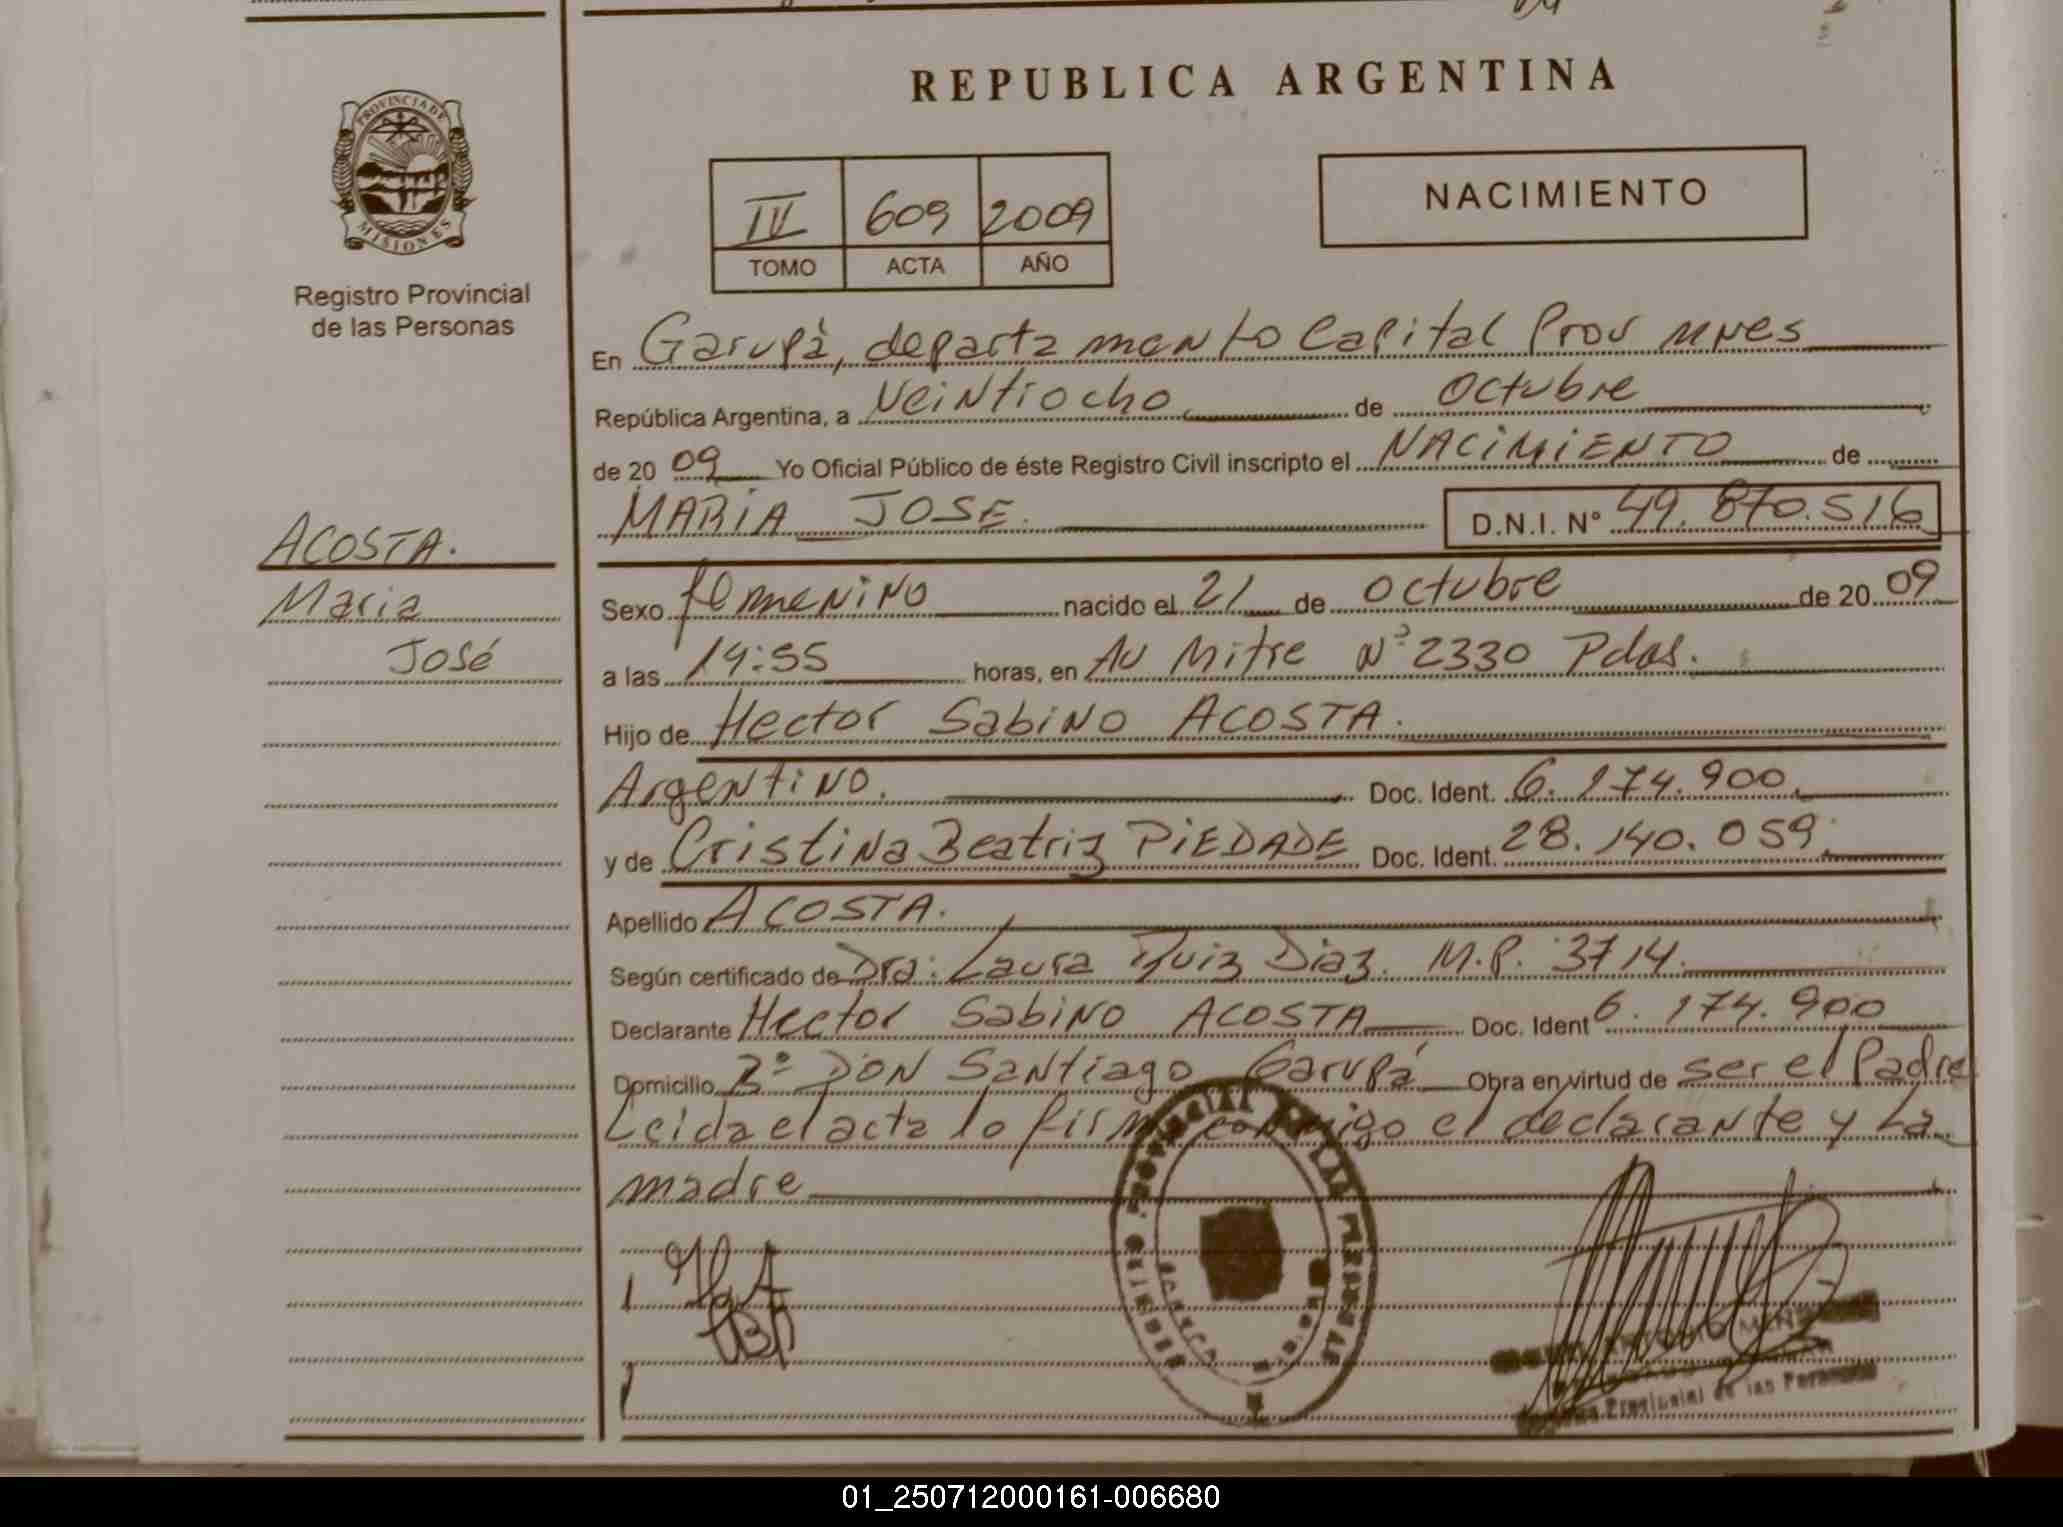 REPUBLICA ARGENTINA
PROVINCIA DE
MISIONES
Registro Provincial
de las Personas
IV 609 2009
TOMO ACTA AÑO
NACIMIENTO
En Garupá, departamento Capital Prov mnes
República Argentina, a veintiocho de octubre
de 2009 Yo Oficial Público de éste Registro Civil inscripto el NACIMIENTO de
MARIA JOSE D.N.I. Nº 49.870.516
ACOSTA.
Maria
José
Sexo femenino nacido el 21 de octubre de 2009
a las 14:55 horas, en Av Mitre Nº 2330 Pdas.
Hijo de Hector Sabino ACOSTA.
Argentino. Doc. Ident. 6.174.900.
y de Cristina Beatriz PIEDADE Doc. Ident. 28.140.059.
Apellido ACOSTA.
Según certificado de Dra: Laura Ruiz Diaz. M.P. 3714.
Declarante Hector Sabino ACOSTA Doc. Ident 6.174.900
Domicilio Bº DON Santiago Garupá Obra en virtud de ser el Padre
Leida el acta lo firma conmigo el declarante y La
madre
ANTONIO
Provincial de las Personas
01_250712000161-006680